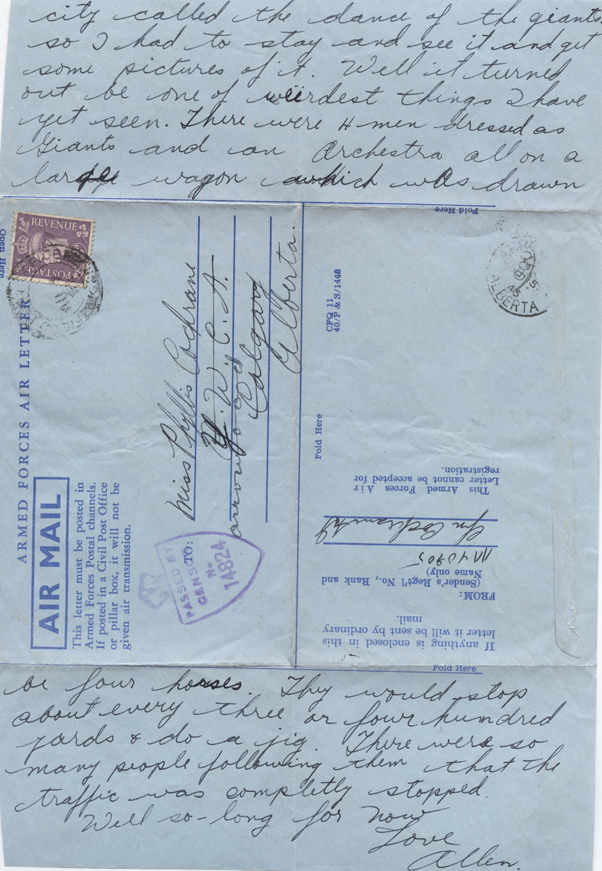 city called the dance of the giants
so I had to stay and see it and get
some pictures of it. Well it turned
out be one of weirdest things I have
yet seen. There were 4 men dressed as
Giants and an Orchestra all on a
large wagon which was drawn
Fold Here
Open Here
REVENUE
POSTAGE
ARMED FORCES AIR LETTER
AIR MAIL
This letter must be posted in
Armed Forces Postal channels.
If posted in a Civil Post Office
or pillar box, it will not be
given air transmission.
TO:
Miss Phyllis Cochrane
Y. W. C. A.
Calgary
Alberta.
PASSED BY
CENSOR
No
14824
CFQ 11
40/P & S/1448
ALBERTA
Fold Here
This Armed Forces Air
Letter cannot be accepted for
registration.
FROM:
(Sender's Reg't'l No., Rank and
Name only)
If anything is enclosed in this
letter it will be sent by ordinary
mail.
Fold Here
be four horses. They would stop
about every three or four hundred
yards & do a jig. There were so
many people following them that the
traffic was completly stopped.
Well so-long for now
Love
Allen.